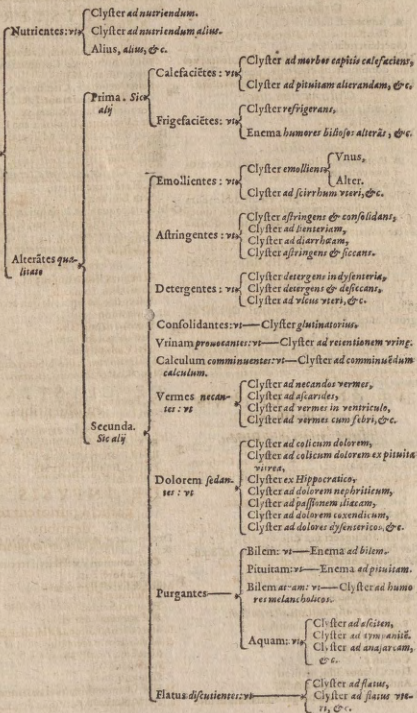 Nutrientes: vt
Clyster ad nutriendum.
Clyster ad nutriendum alius.
Alius, alius, &c.
Alterãtes qua-
litate
Prima. Sic
alij
Calefaciẽtes: vt
Clyster ad morbos capitis calefaciens,
Clyster ad pituitam alterandam, &c.
Frigefaciẽtes: vt
Clyster refrigerans,
Enema humores biliosos alterãs, &c.
Secunda.
Sic alij
Emollientes: vt
Clyster emolliens
Vnus,
Alter.
Clyster ad scirrhum vteri, &c.
Astringentes: vt
Clyster astringens & consolidans,
Clyster ad lienteriam,
Clyster ad diarrhœam,
Clyster astringens & siccans.
Detergentes: vt
Clyster detergens in dysenteria,
Clyster detergens & desiccans,
Clyster ad vlcus vteri, &c.
Consolidantes: vt—Clyster glutinatorius.
Vrinam prouocantes: vt—Clyster ad retentionem vrinę.
Calculum comminuentes: vt—Clyster ad comminuẽdum
calculum.
Vermes necan-
tes: vt
Clyster ad necandos vermes,
Clyster ad ascarides,
Clyster ad vermes in ventriculo,
Clyster ad vermes cum febri, &c.
Dolorem sedan-
tes: vt
Clyster ad colicum dolorem,
Clyster ad colicum dolorem ex pituita
vitrea,
Clyster ex Hippocratico,
Clyster ad dolorem nephriticum,
Clyster ad passionem iliacam,
Clyster ad dolorem coxendicum,
Clyster ad dolores dysentericos, &c.
Purgantes
Bilem: vt—Enema ad bilem.
Pituitam: vt—Enema ad pituitam.
Bilem atram: vt—Clyster ad humo
res melancholicos.
Aquam: vt
Clyster ad asciten,
Clyster ad tympanitẽ.
Clyster ad anasarcam,
&c.
Flatus discutientes: vt
Clyster ad flatus,
Clyster ad flatus vte-
ri, &c.